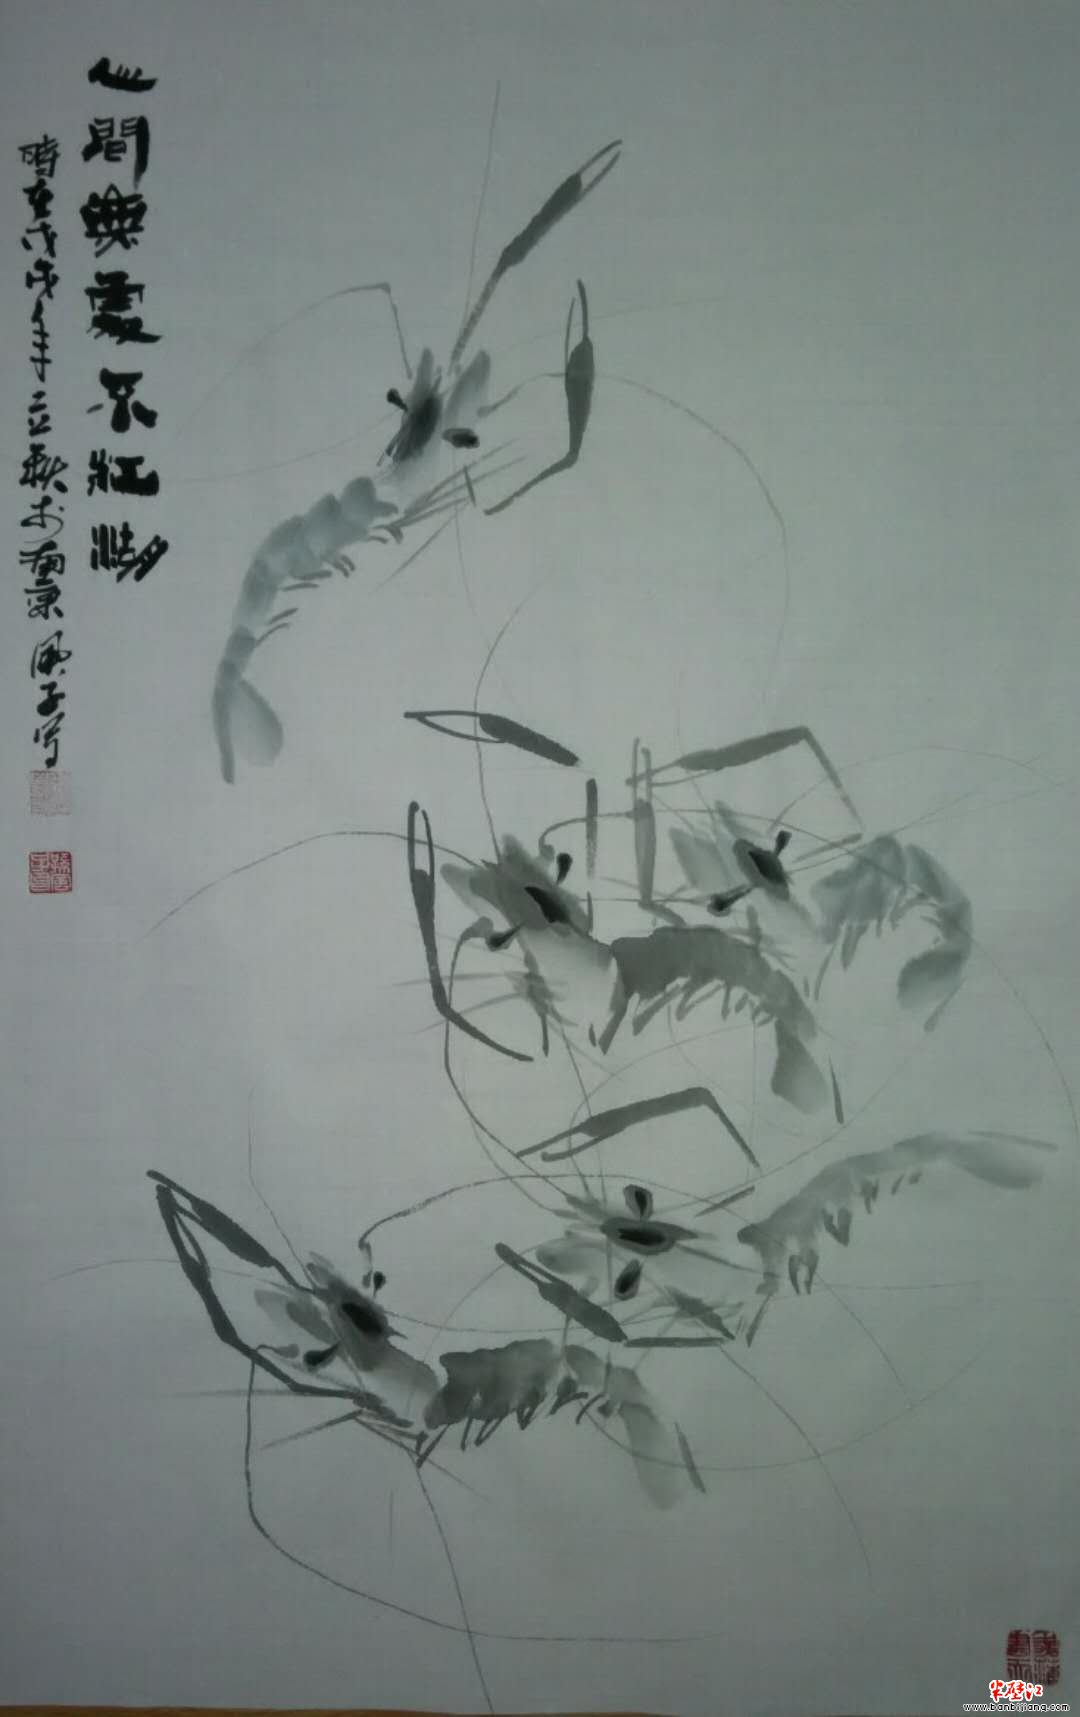 心間無處不江湖
時在戊戌年立秋於南粤風子写
半壁江
www.banbijiang.com